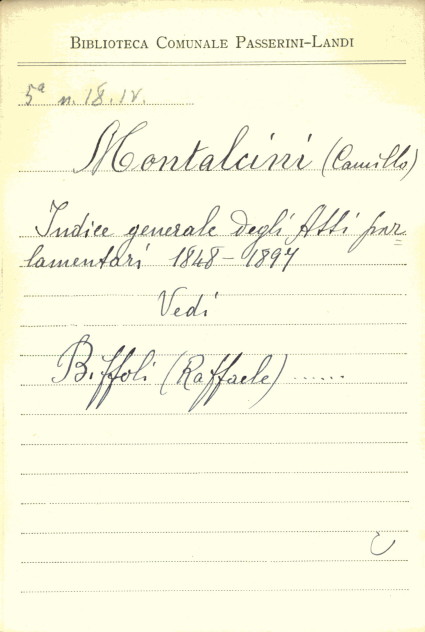 BIBLIOTECA COMUNALE PASSERINI-LANDI
5ª n. 18. IV.
Montalcini (Camillo)
Indice generale degli Atti par=
lamentari 1848-1897
Vedi
Biffoli (Raffaele) ......